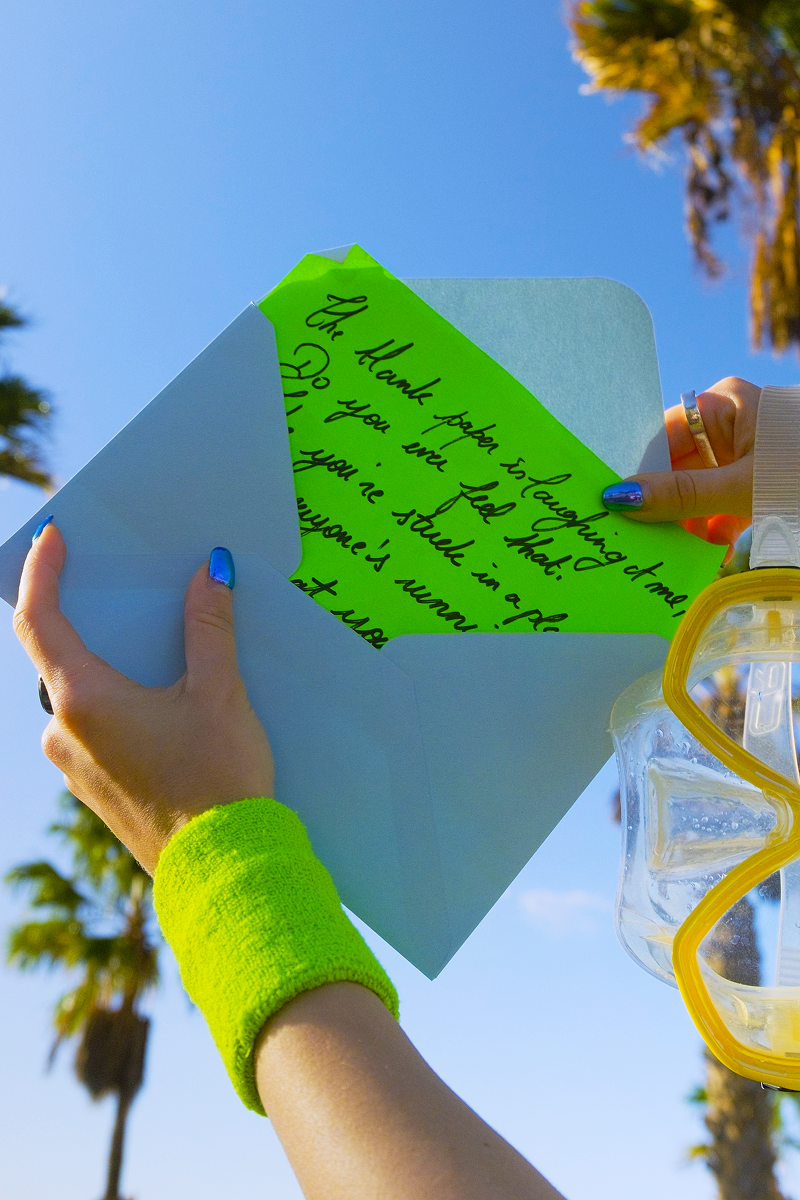 the blank paper is laughing at me,
Do you ever feel that.
you're stuck in a
anyone's
at you